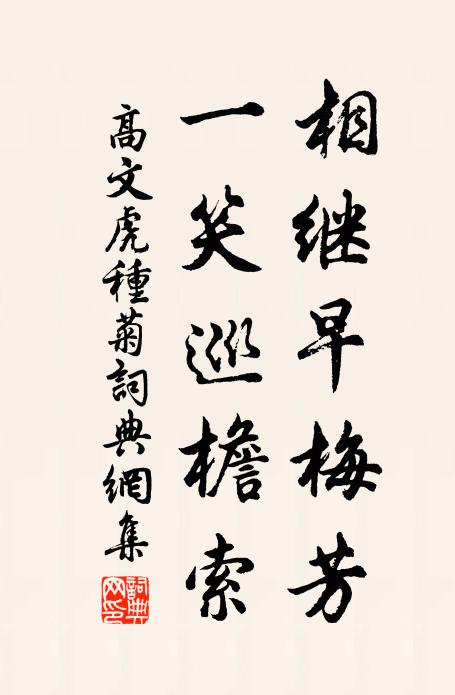 相继早梅芳
一笑巡檐索
高文虎種菊詞典網集
詞典網印